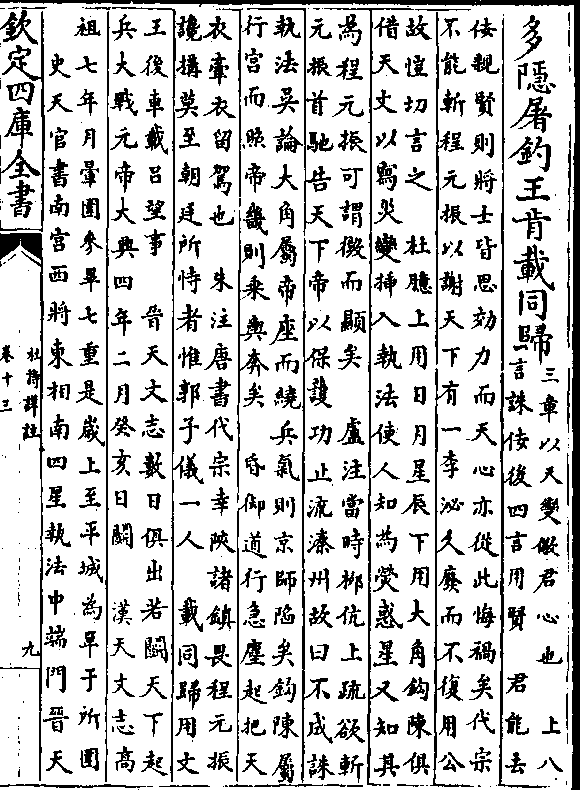 多隱屠釣王肯載同歸三章以天變儆君心也 上八
言誅佞後四言用賢 君能去
佞親賢則將士皆思効力而天心亦從此悔禍矣代宗
不能斬程元振以謝天下有一李泌久廢而不復用公
故愷切言之 杜臆上用日月星辰下用大角鈎陳俱
借天文以寫災變揷入執法使人知為熒惑星又知其
為程元振可謂微而顯矣 盧注當時栁伉上疏欲斬
元振首馳告天下帝以保護功止流溱州故曰不成誅
執法吳論大角屬帝座而繞兵氣則京師陷矣鈎陳屬
行宫而照帝畿則乗輿奔矣 昏御道行急塵起把天
衣牽衣留駕也 朱注唐書代宗幸陜諸鎮畏程元振
讒搆莫至朝廷所恃者惟郭子儀一人 載同歸用文
王後車載吕望事 晉天文志數日俱出若鬬天下起
兵大戰元帝大興四年二月癸亥日鬬 漢天文志高
祖七年月暈圍參畢七重是嵗上至平城為單于所圍
史天官書南宫西將東相南四星執法中端門晉天
欽定四庫全書
杜詩詳註
卷十三
九